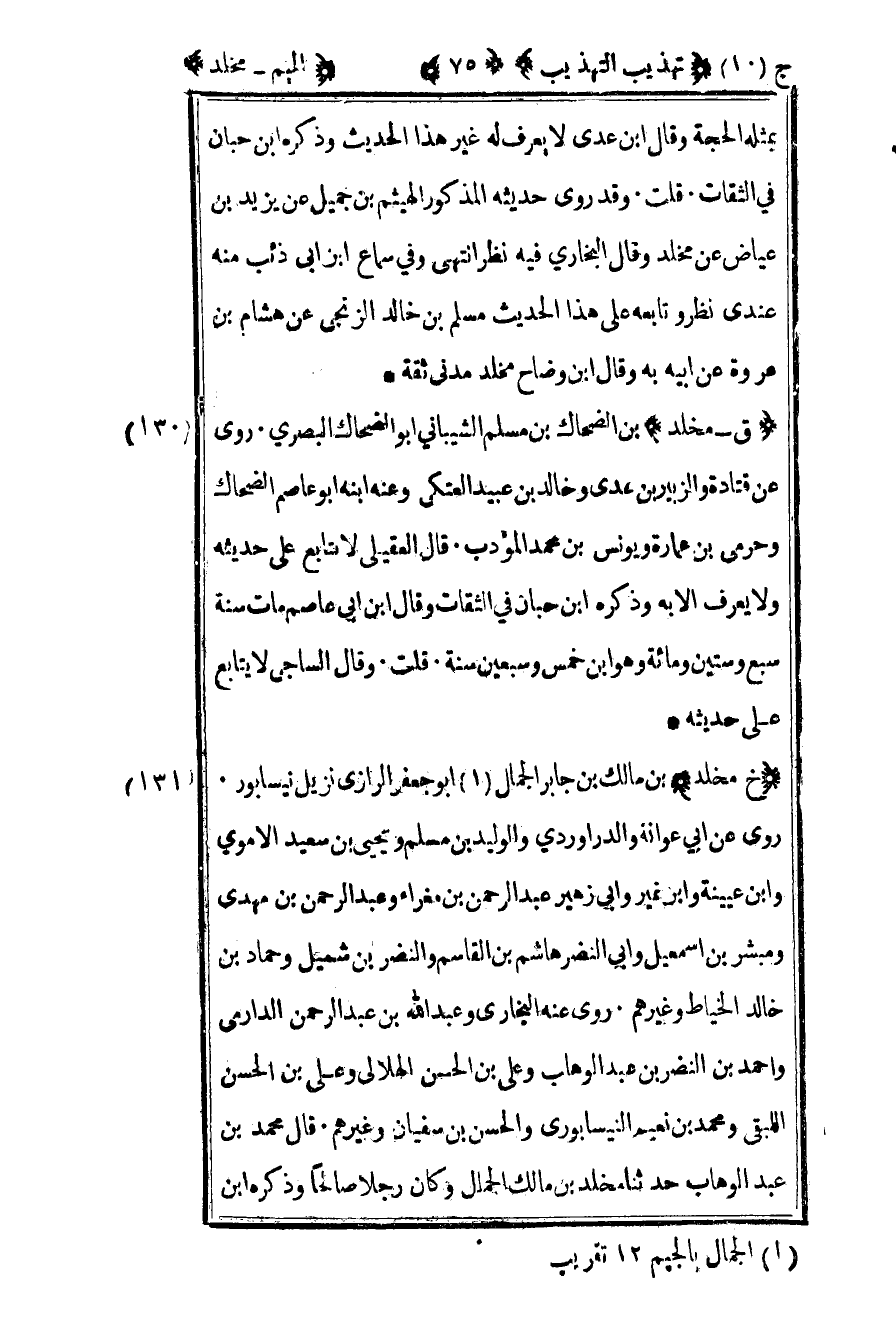 ج (١٠) ﴿ تهذيب التهذيب ﴾ ﴿ ٧٥ ﴾ ﴿ الميم ـ مخلد ﴾
بمثله الحجة وقال ابن عدى لا يعرف له غير هذا الحديث وذكره ابن حبان
في الثقات · قلت · وقد روى حديثه المذكور الهيثم بن جميل عن يزيد بن
عياض عن مخلد وقال البخاري فيه نظر انتهى وفي سماع ابن ابى ذئب منه
عندى نظر و تابعه على هذا الحديث مسلم بن خالد الزنجى عن هشام بن
عروة عن ابيه به وقال ابن وضاح مخلد مدنى ثقة •
﴿ ق ـ مخلد ﴾ بن الضحاك بن مسلم الشيباني ابو الضحاك البصري · روى (١٣٠)
عن قتادة والزبير بن عدى وخالد بن عبيد العتكى وعنه ابنه ابو عاصم الضحاك
وحرمى بن عمارة ويونس بن محمد المؤدب · قال العقيلى لا يتابع على حديثه
ولا يعرف الا به وذكره ابن حبان في الثقات وقال ابن ابي عاصم مات سنة
سبع وستين ومائة وهو ابن خمس وسبعين سنة · قلت · وقال الساجى لا يتابع
على حديثه •
﴿ خ مخلد ﴾ بن مالك بن جابر الجمال (١) ابو جعفر الرازى نزيل نيسابور · (١٣١)
روى عن ابي عوانة والدراوردي والوليد بن مسلم ويحيى بن سعيد الاموي
وابن عيينة وابن نمير وابي زهير عبد الرحمن بن مغراء وعبد الرحمن بن مهدى
ومبشر بن اسمعيل وابي النضر هاشم بن القاسم والنضر بن شميل وحماد بن
خالد الخياط وغيرهم · روى عنه البخارى وعبد الله بن عبد الرحمن الدارمى
واحمد بن النضر بن عبد الوهاب وعلى بن الحسن الهلالى وعلى بن الحسن
اللبقى ومحمد بن نعيم النيسابورى والحسن بن سفيان وغيرهم · قال محمد بن
عبد الوهاب حدثنا مخلد بن مالك الجمال وكان رجلا صالحا وذكره ابن
(١) الجمال بالجيم ١٢ تقريب